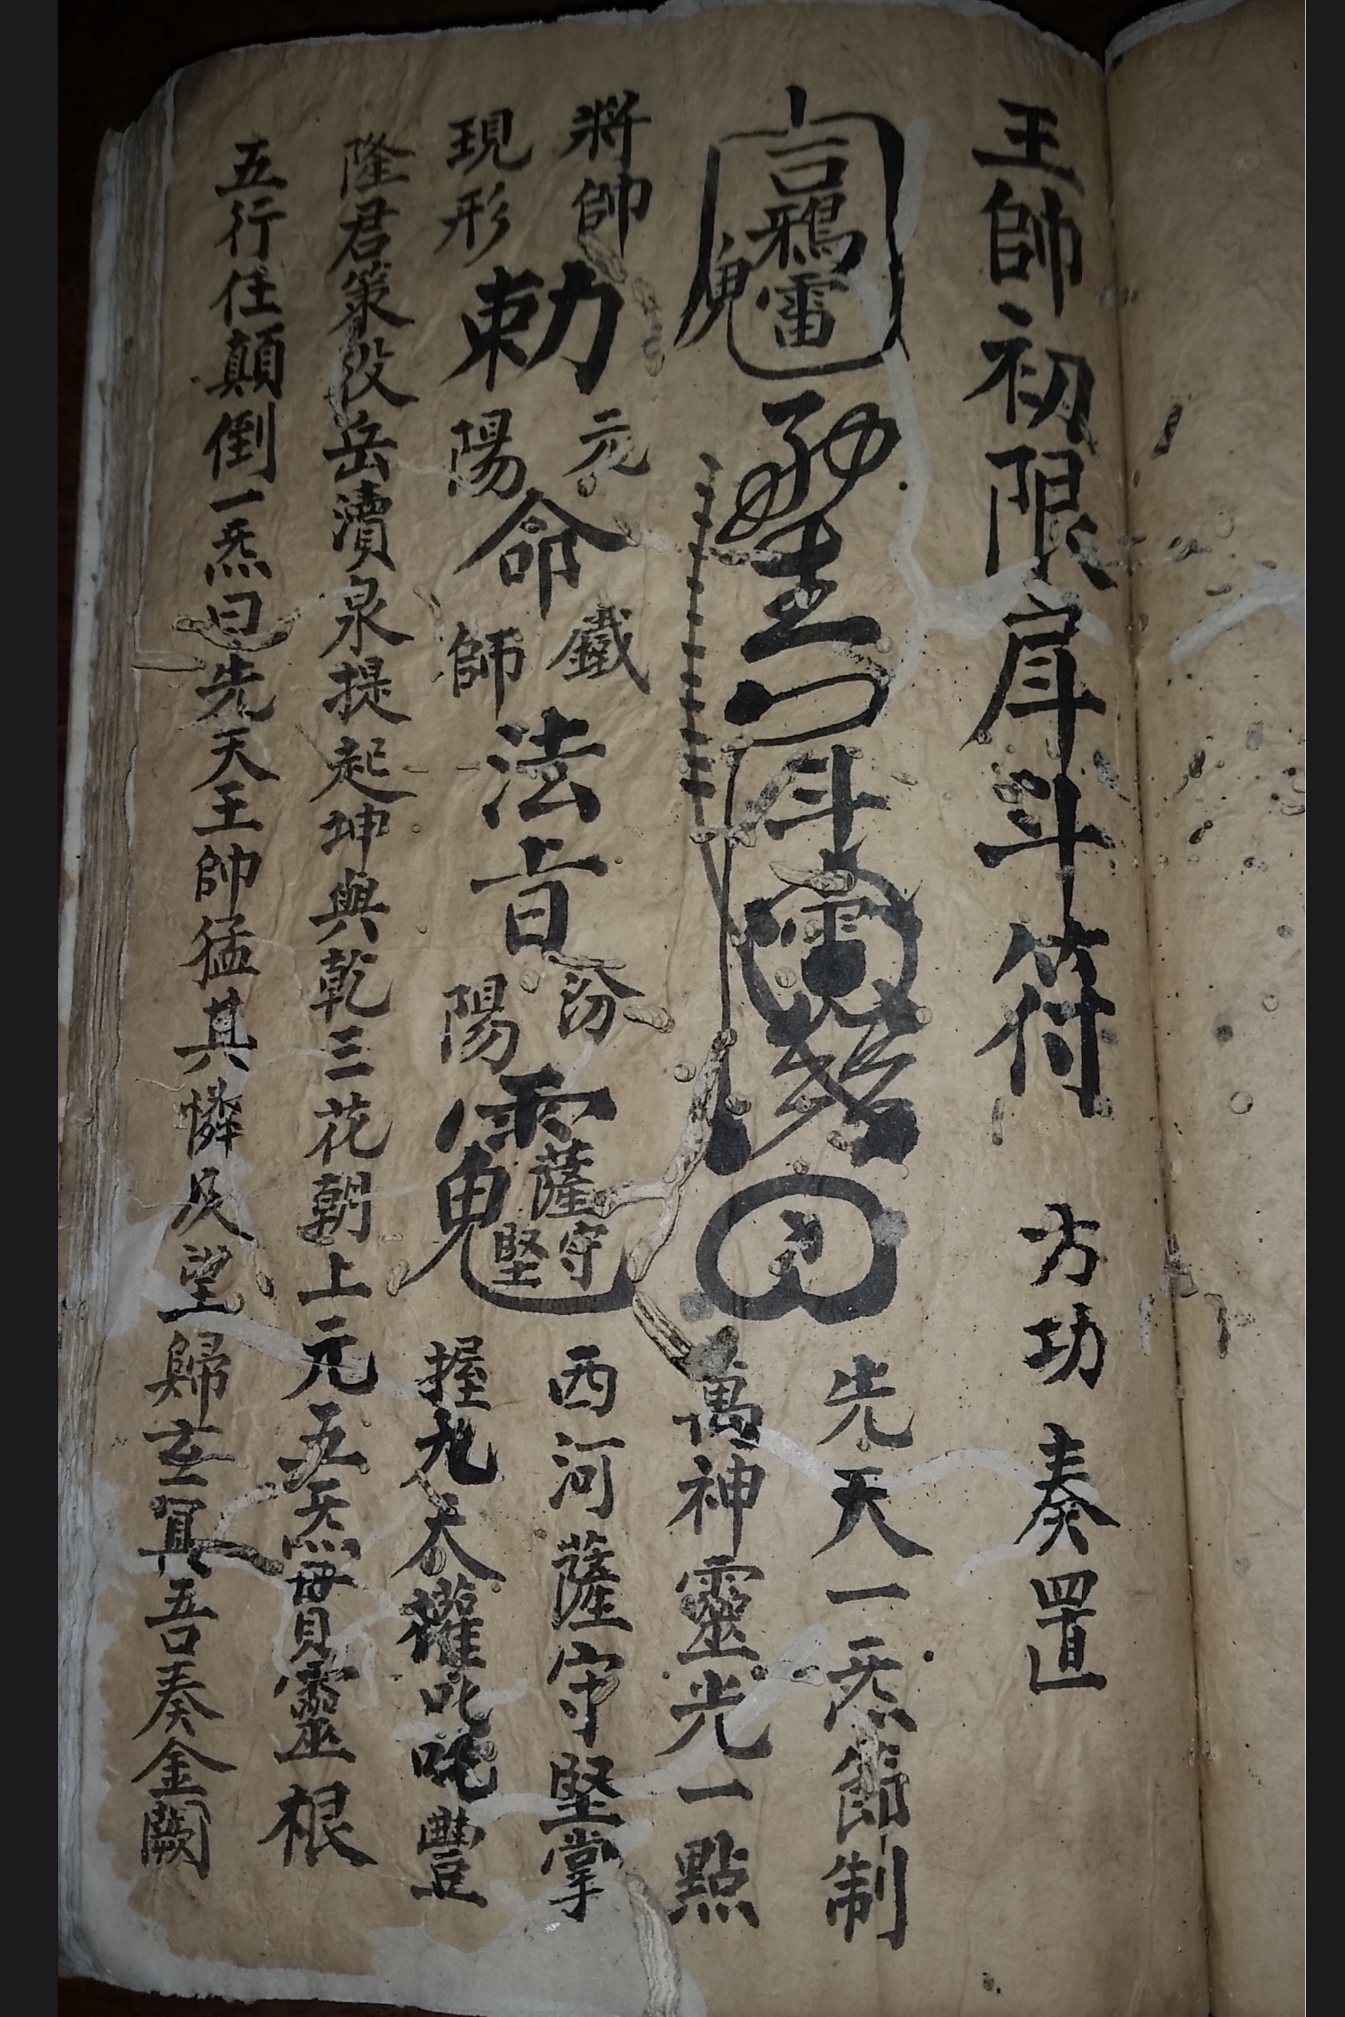 王帥初限戽斗符 方功 奏置
先天一炁節制
萬神靈光一點
將帥 元 鐵 汾
勅命法旨
現形 陽 師 陽
薩守堅
西河薩守堅掌
握九天權叱咤豐
隆君策役岳瀆泉提起坤與乾三花朝上元五炁貫靈根
五行任顛倒一炁曰先天王帥猛其憐及望歸玄冥吾奏金闕